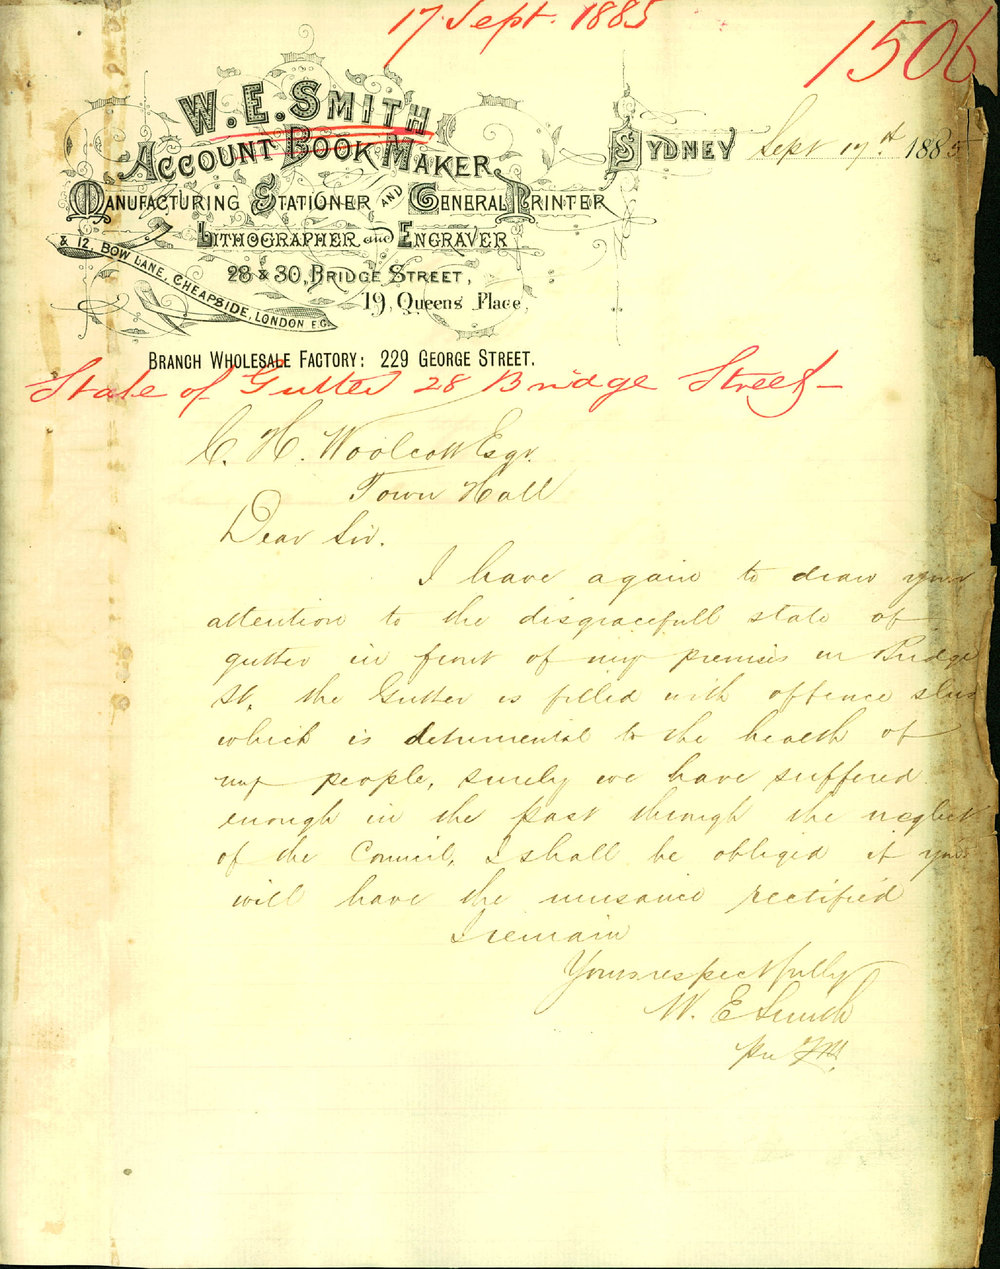 17 Sept. 1885
1506
W. E. SMITH
ACCOUNT BOOK MAKER
MANUFACTURING STATIONER AND GENERAL PRINTER
LITHOGRAPHER and ENGRAVER
28 & 30, BRIDGE STREET,
19, Queens Place,
& 12, BOW LANE, CHEAPSIDE, LONDON E.C.
BRANCH WHOLESALE FACTORY: 229 GEORGE STREET.
SYDNEY Sept 17th 1885
State of Gutter 28 Bridge Street —
C. H. Woolcott Esqr.
Town Hall
Dear Sir.
I have again to draw your
attention to the disgracefull state of
gutter in front of my premises in Bridge
St. the Gutter is filled with offence
which is detrimental to the health of
my people, surely we have suffered
enough in the past through the neglect
of the Council, I shall be obliged if you
will have the nuisance rectified
I remain
Yours respectfully
W. E Smith